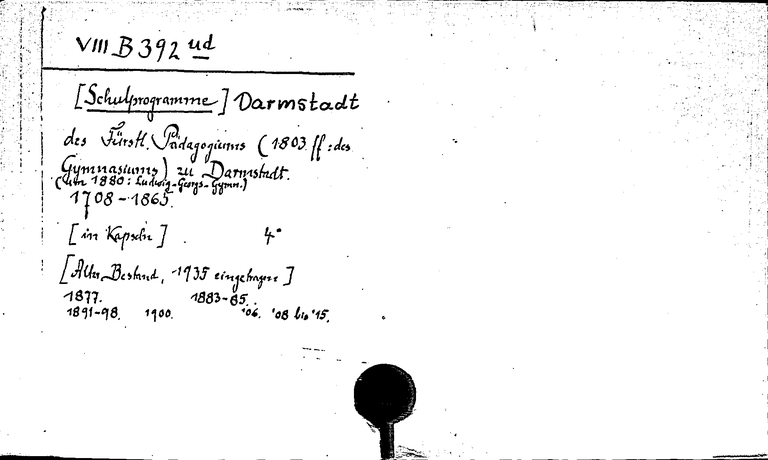 VIII B 392 ud
[Schulprogramme] Darmstadt
des Fürstl. Pädagogiums (1803 ff: des
Gymnasiums) zu Darmstadt.
(um 1880: Ludwig-Georgs-Gymn.)
1708-1865.
[in Kapseln] 4°
[Alter Bestand, 1935 eingetragen]
1877. 1883-85.
1891-98. 1900. '06. '08 bis '15.